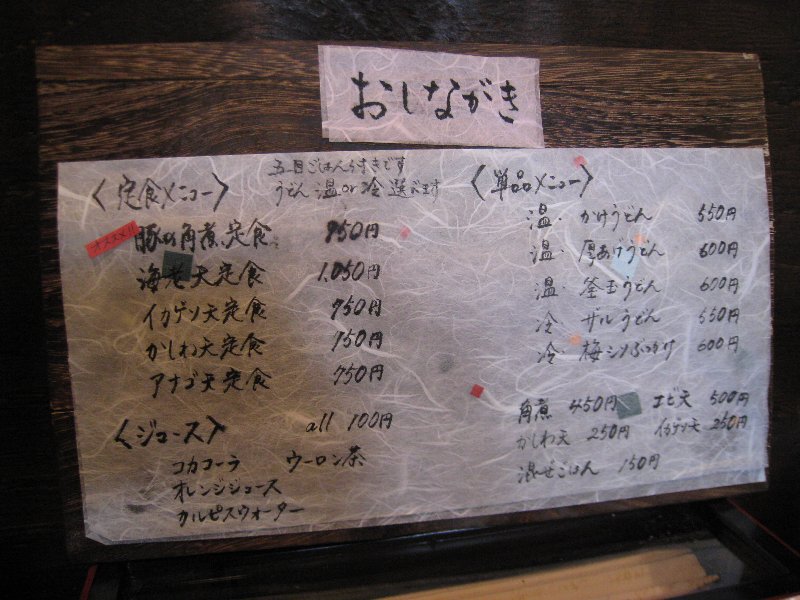 おしながき
〈定食メニュー〉
五目ごはんつきです
うどん 温or冷 選べます
オススメ!!
豚の角煮定食 950円
海老天定食 1,050円
イカゲソ天定食 950円
かしわ天定食 950円
アナゴ天定食 950円
〈ジュース〉 all 100円
コカコーラ ウーロン茶
オレンジジュース
カルピスウォーター
〈単品メニュー〉
温・かけうどん 550円
温・厚あげうどん 600円
温・釜玉うどん 600円
冷・ザルうどん 550円
冷・梅シソぶっかけ 600円
角煮 450円 エビ天 500円
かしわ天 250円 イカゲソ天 250円
混ぜごはん 150円